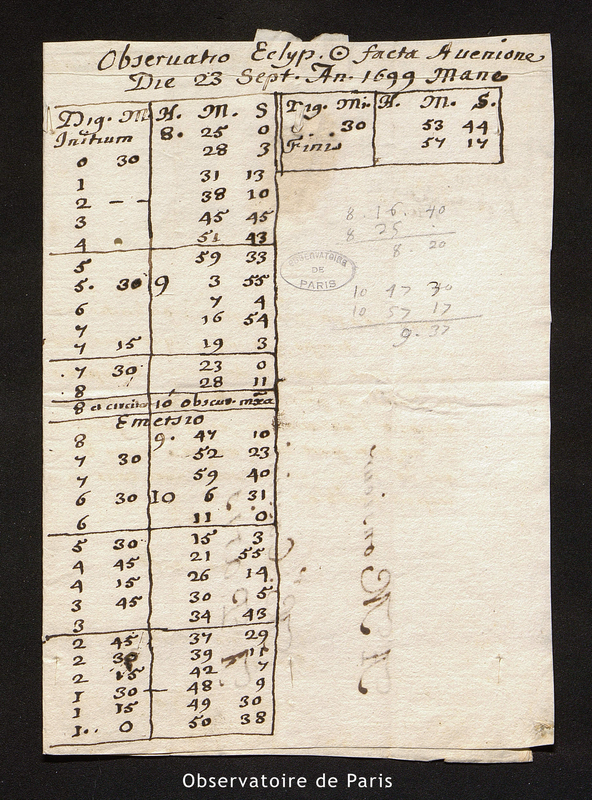 Observatio Eclyp. ☉ facta Avenione
Die 23 Sept. An. 1699 Mane
Dig. M. H. M. S
Initium 8. 25 0
0 30 28 3
1 31 13
2 - - 38 10
3 45 45
4 51 43
5 59 33
5. 30 9 3 55
6 7 4
7 16 54
7 15 19 3
7 30 23 0
8 28 11
8 et circiter 10 obscur. mxa
Emersio
8 9. 47 10
7 30 52 23
7 59 40
6 30 10 6 31
6 11 0
5 30 15 3
4 45 21 55
4 15 26 14
3 45 30 5
3 34 43
2 45 37 29
2 30 39 11
2 15 42 7
1 30 48 9
1 15 49 30
1.. 0 50 38
Dig. Mi. H. M. S.
30 53 44
Finis 57 17
8. 16. 40
8 25
8. 20
10 47 30
10 57 17
9. 37
OBSERVATOIRE
DE
PARIS
Observatoire de Paris